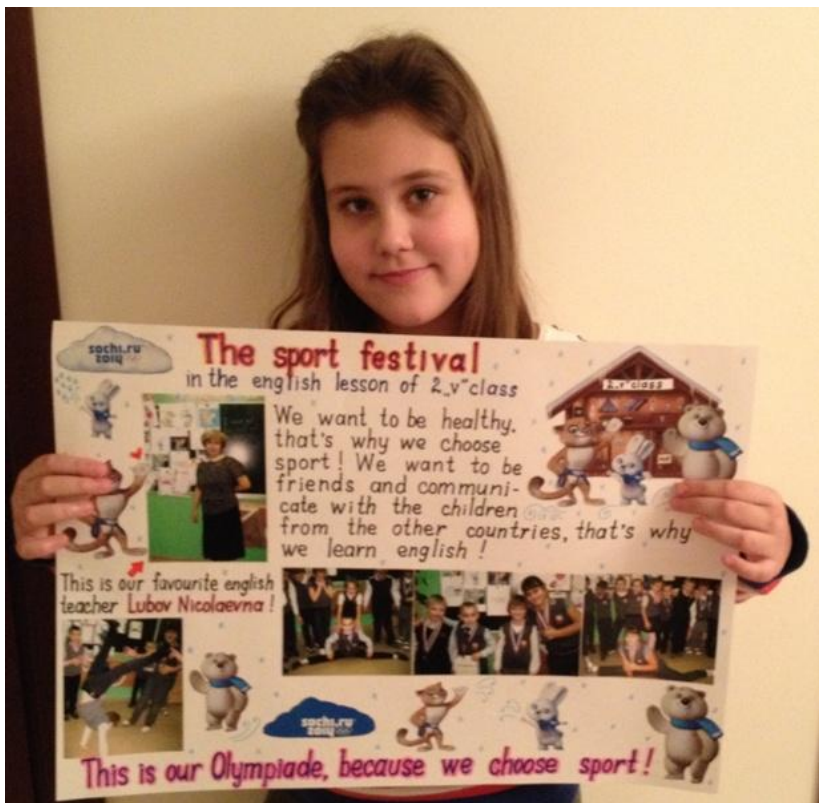 sochi.ru
2014
The sport festival
in the english lesson of 2„v" class
2„v" class
We want to be healthy,
that's why we choose
sport! We want to be
friends and communi-
cate with the children
from the other countries, that's why
we learn english!
This is our favourite english
teacher Lubov Nicolaevna!
sochi.ru
2014
This is our Olympiade, because we choose sport!